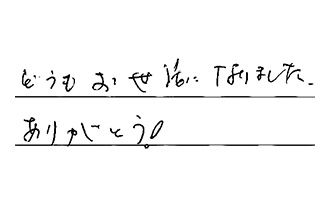 どうもお世話になりました.
ありがとう。